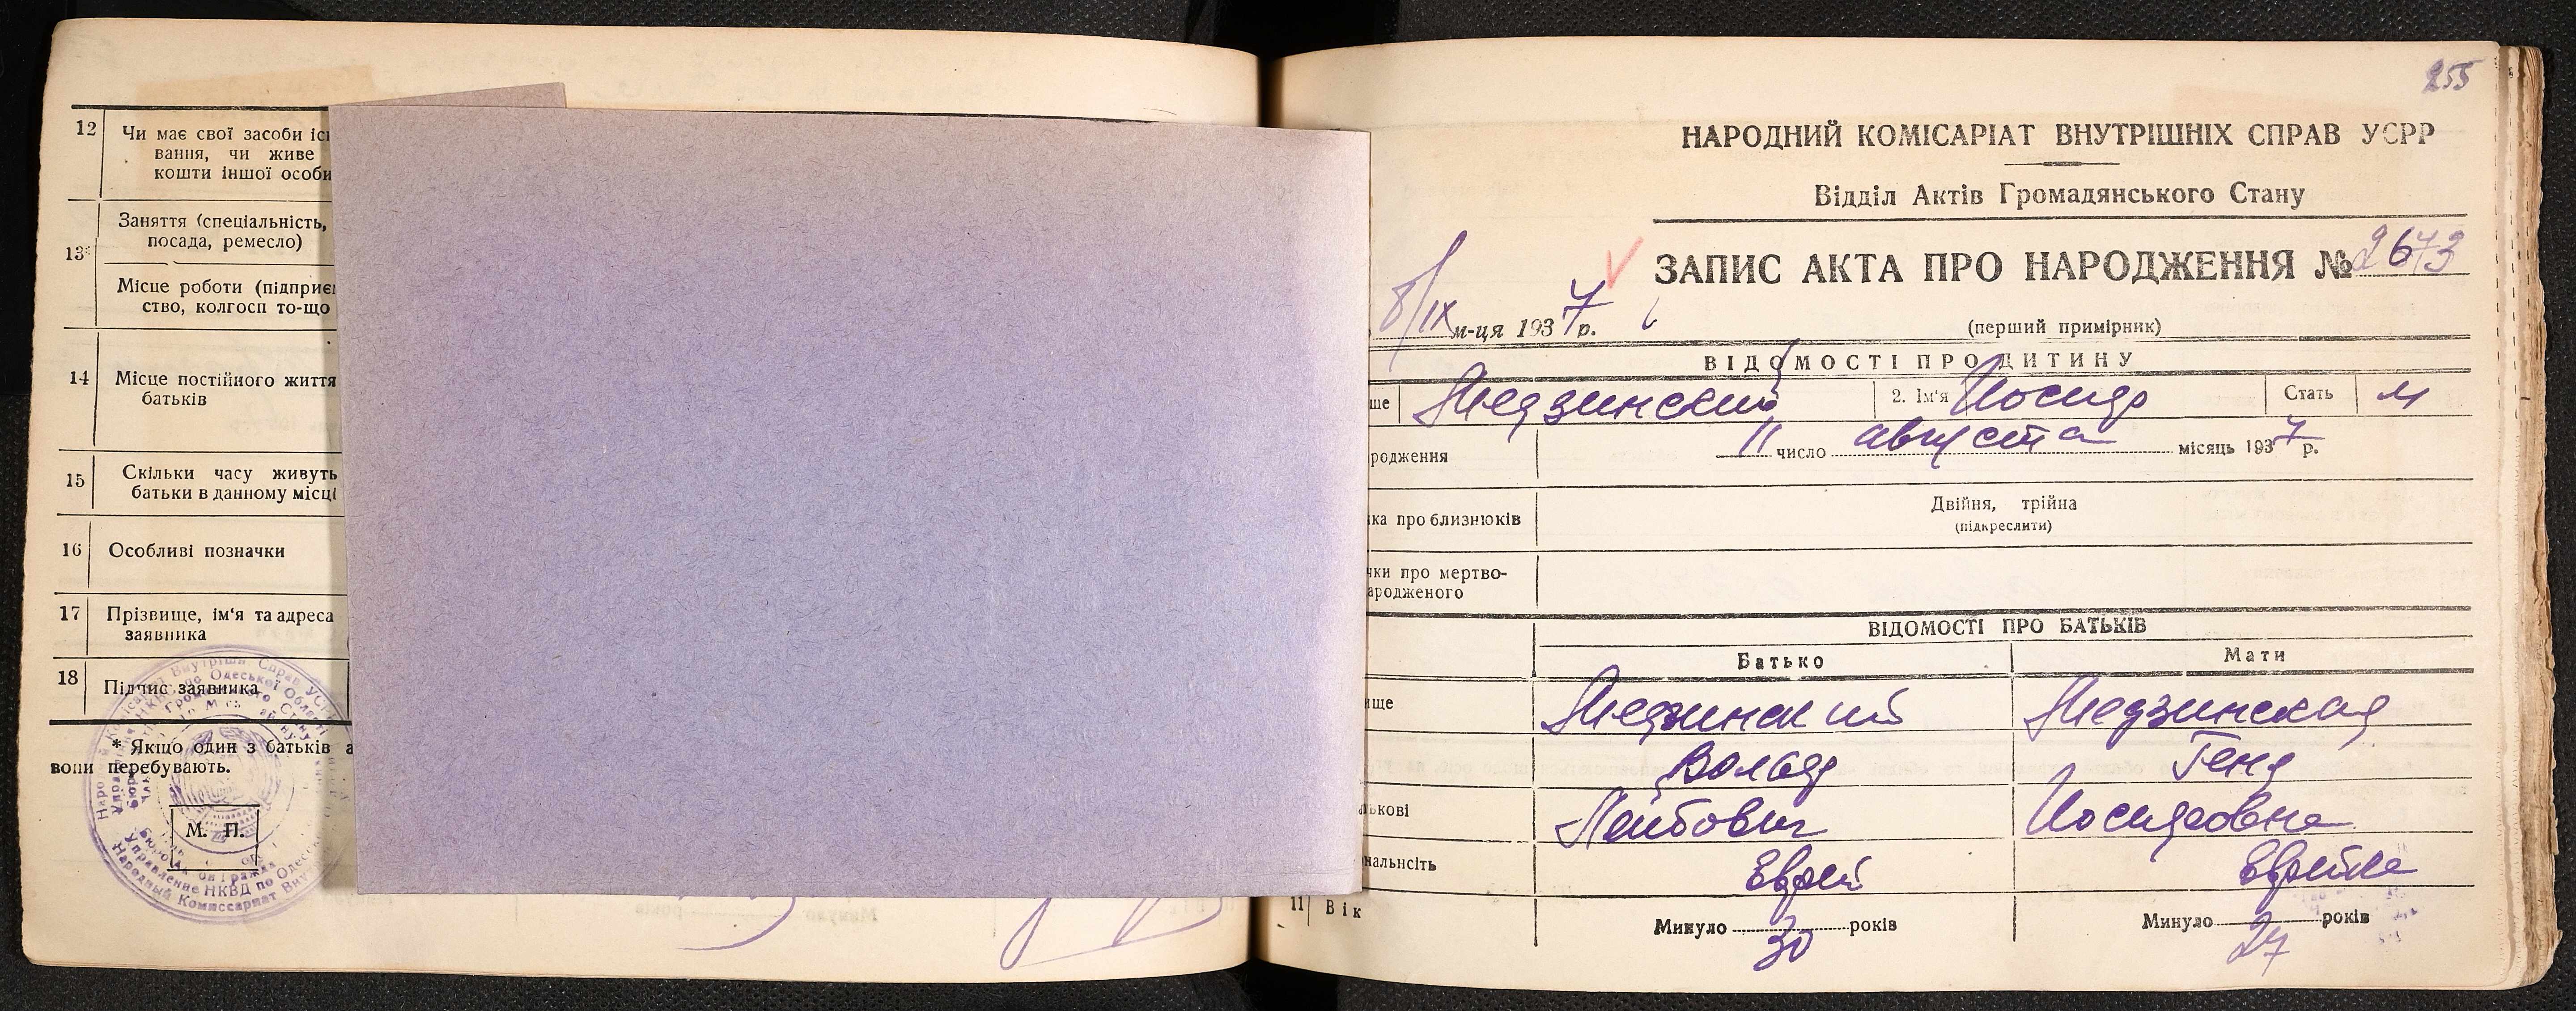 12 Чи має свої засоби існ
вання, чи живе
кошти іншої особи
13* Заняття (спеціальність,
посада, ремесло)
Місце роботи (підприєм
ство, колгосп то-що
14 Місце постійного життя
батьків
15 Скільки часу живуть
батьки в данному місці
16 Особливі позначки
17 Прізвище, ім'я та адреса
заявника
18 Підпис заявника
* Якщо один з батьків
вони перебувають.
М. П.
Управление НКВД по Одесс
Народный Комиссариат Вну
255
НАРОДНИЙ КОМІСАРІАТ ВНУТРІШНІХ СПРАВ УСРР
Відділ Актів Громадянського Стану
ЗАПИС АКТА ПРО НАРОДЖЕННЯ № 2673
8/IX м-ця 1937 р.
(перший примірник)
ВІДОМОСТІ ПРО ДИТИНУ
ще Медзинский 2. Ім'я Иосиф Стать М
родження 11 число августа місяць 1937 р.
ка про близнюків Двійня, трійна
(підкреслити)
чки про мертво-
ародженого
ВІДОМОСТІ ПРО БАТЬКІВ
Батько Мати
ище Медзинский Медзинская
Вольф Геня
ькові Лейбович Иосифовна
нальність Еврей Еврейка
11 Вік Минуло 30 років Минуло 27 років